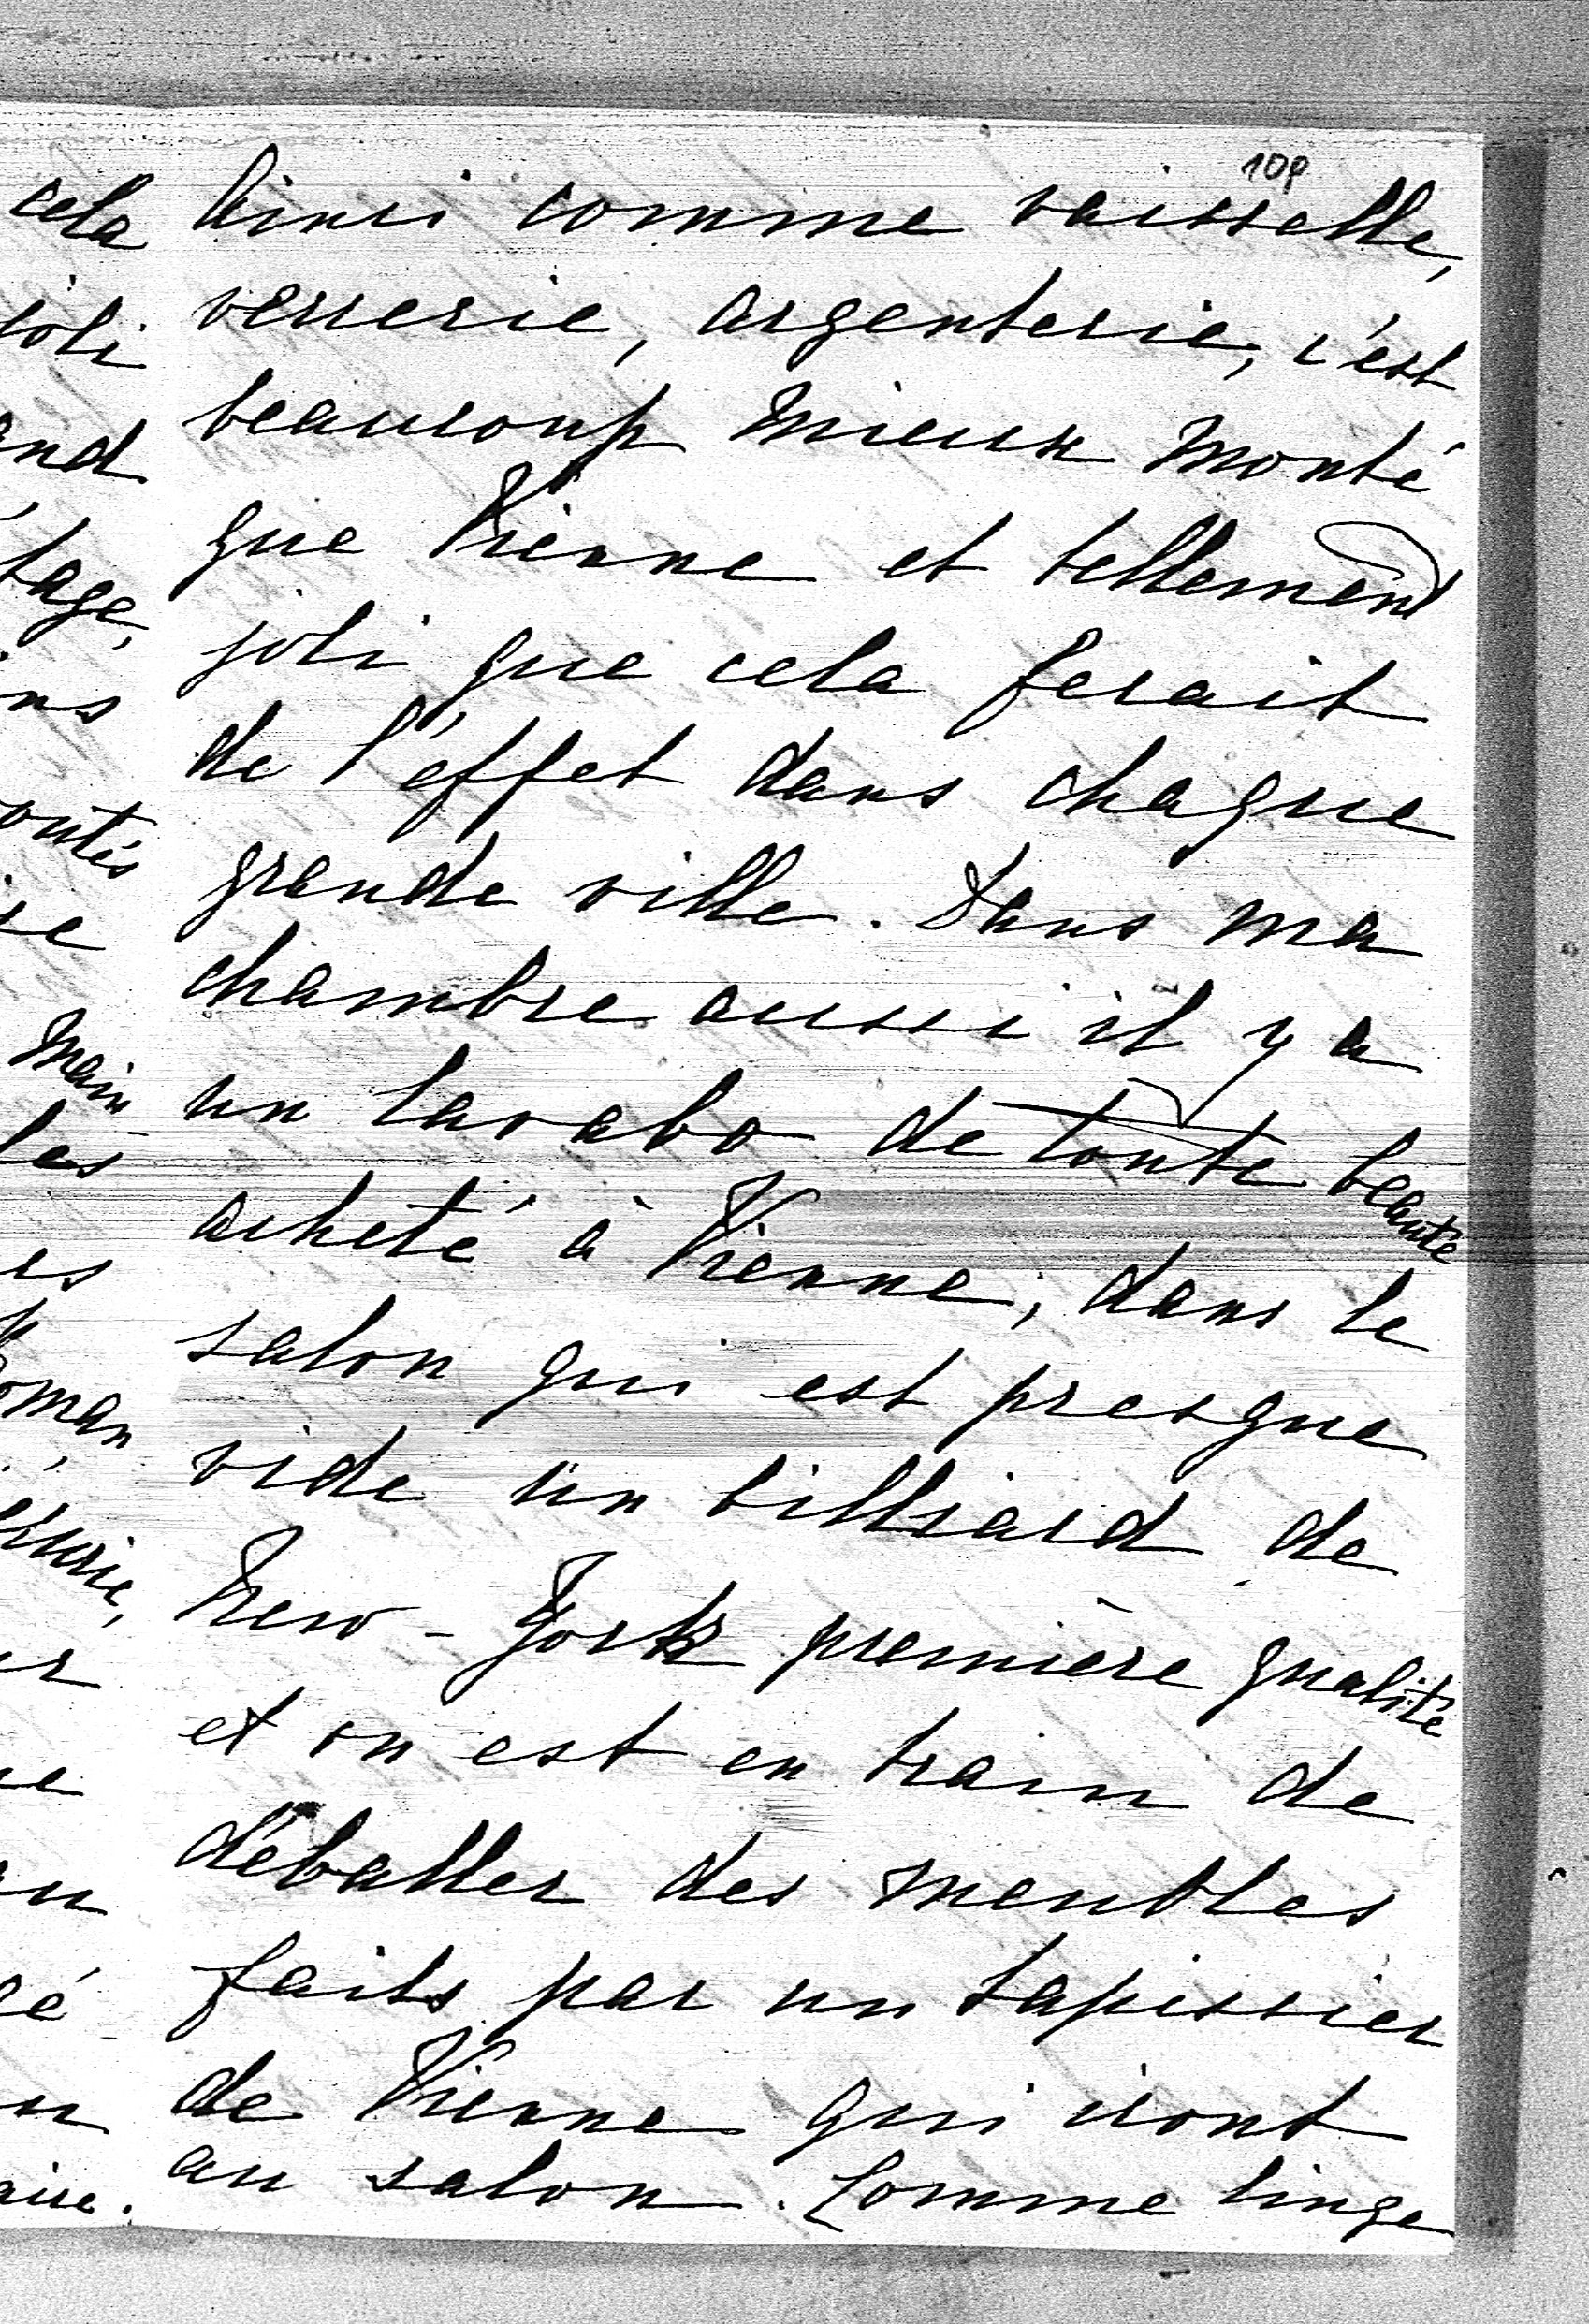 109
Ainsi comme vaisselle,
verrerie, argenterie, c'est
beaucoup mieux monté
que Vienne et tellement
joli que cela ferait
de l'effet dans chaque
grande ville. Dans ma
chambre aussi il y a
un lavabo de toute beauté
acheté à Vienne, dans le
salon qui est presque
vide un billiard de
New-York première qualité
et on est en train de
déballer des meubles
faits par un tapissier
de Vienne qui iront
au salon. Comme linge
cela
joli
main
les